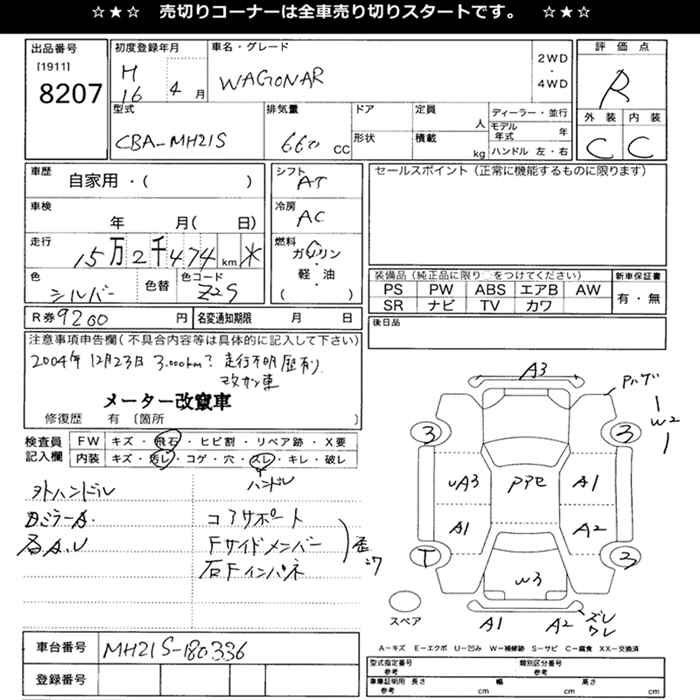 ☆★☆ 売切りコーナーは全車売り切りスタートです。 ☆★☆
出品番号 初度登録年月 車名・グレード 2WD・4WD 評価点
[1911]
8207 H16 4月 WAGONAR R
型式 排気量 ドア 定員 人 ディーラー・並行 外装 内装
CBA-MH21S 660 CC 形状 積載 kg モデル年式 年 C C
ハンドル 左・右
車歴 シフト セールスポイント (正常に機能するものに限ります)
自家用・( ) AT
車検 冷房
年 月( 日) AC
走行 燃料
15万2千474km * ガソリン・軽・油 ( )
色 色替 色コード 装備品(純正品に限り○をつけてください) 新車保証書
シルバー Z2S PS PW ABS エアB AW 有・無
SR ナビ TV カワ
R券 9200円 名変通知期限 月 日 後日品
注意事項申告欄(不具合内容等は具体的に記入して下さい)
2004年12月23日 3.000km? 走行不明歴有り
改ザン車
メーター改竄車
修復歴 有〔箇所 〕
検査員記入欄 FW キズ・飛石・ヒビ割・リペア跡・X要
内装 キズ・汚レ・コゲ・穴・スレ・キレ・破レ
ハンドル
外ハンドル
ミラーA コアサポート
各A.U Fサイドメンバー
右Fインパネ
A3
W2
3 3
UA3 PアE A1
A1 A2
T 3
W3
スペア A1 A2 ズレ ワレ
A-キズ E-エクボ U-凹み W-補修跡 S-サビ C-腐食 XX-交換済
車台番号 MH21S-180336
登録番号
型式指定番号 参考 類別区分番号 参考
車庫証明用 参考 長さ cm 幅 cm 高さ cm